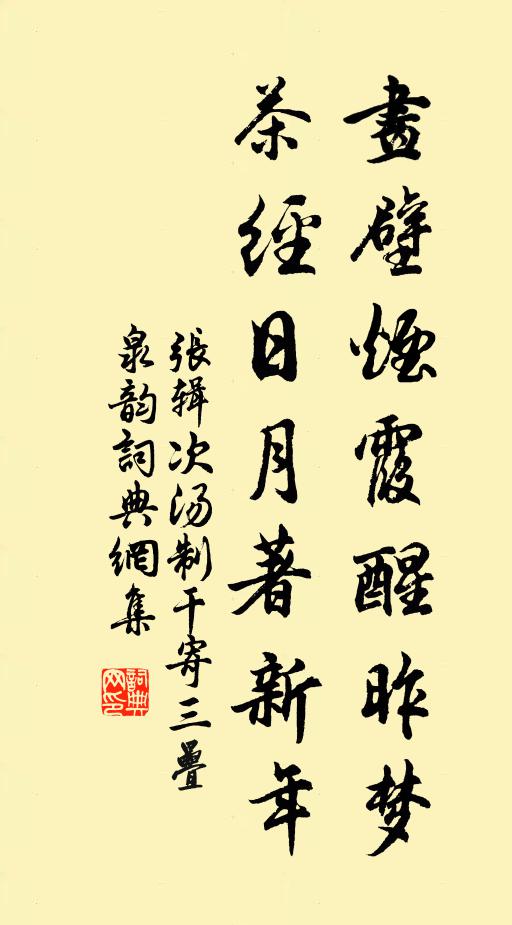 畫壁煙霞醒昨梦
茶經日月著新年
張辑次汤制干寄三疊
泉韵詞典網集
詞典网印